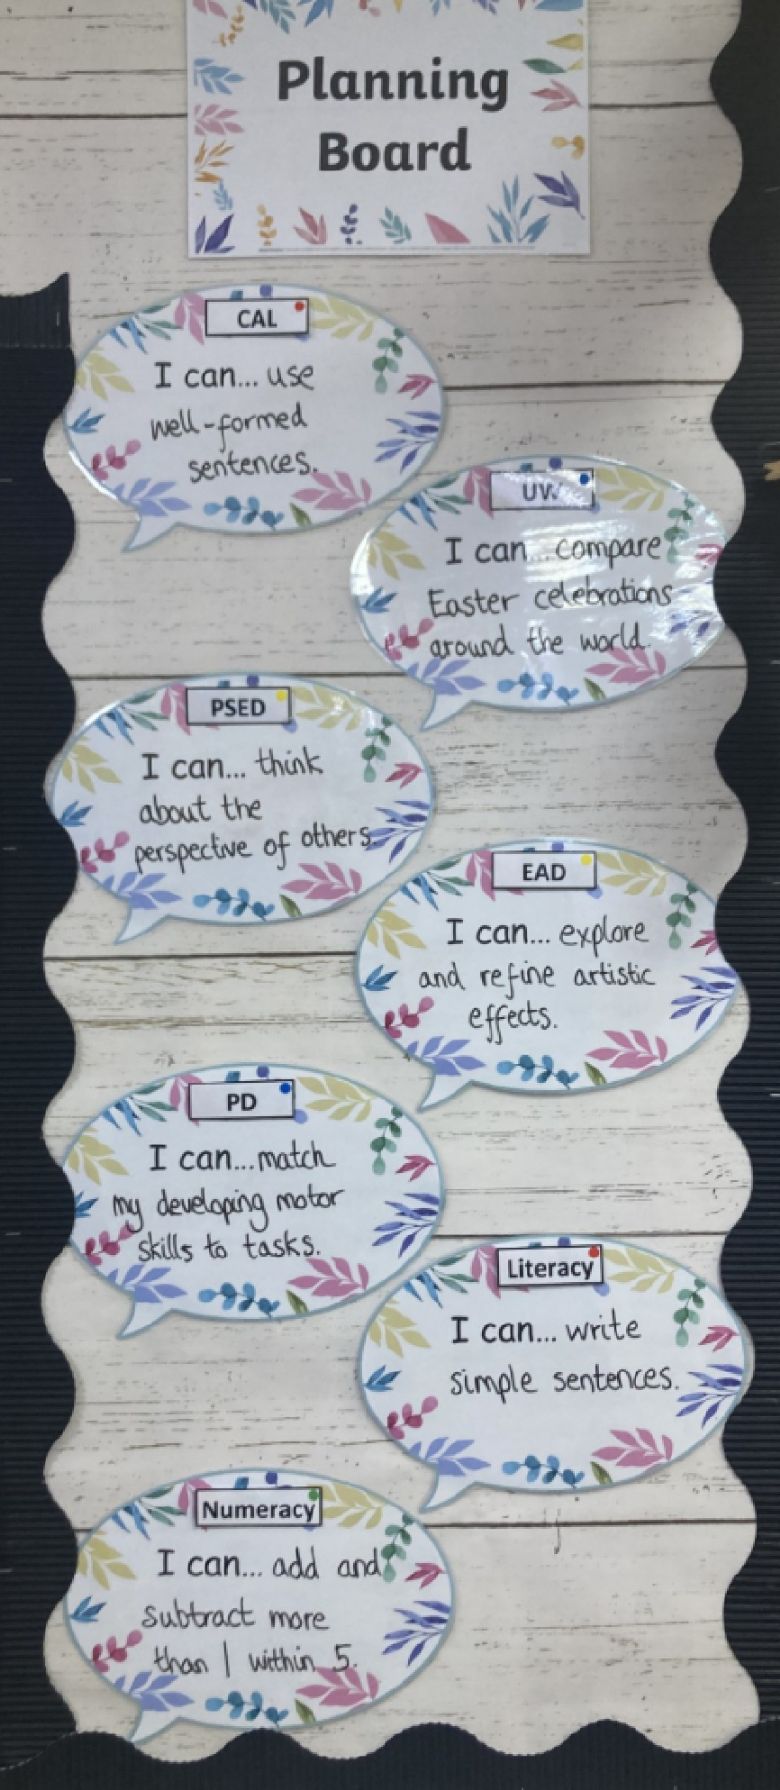 Planning
Board
CAL
I can... use
well-formed
sentences.
UW
I can... compare
Easter celebrations
around the world.
PSED
I can... think
about the
perspective of others.
EAD
I can... explore
and refine artistic
effects.
PD
I can... match
my developing motor
skills to tasks.
Literacy
I can... write
simple sentences.
Numeracy
I can... add and
subtract more
than 1 within 5.